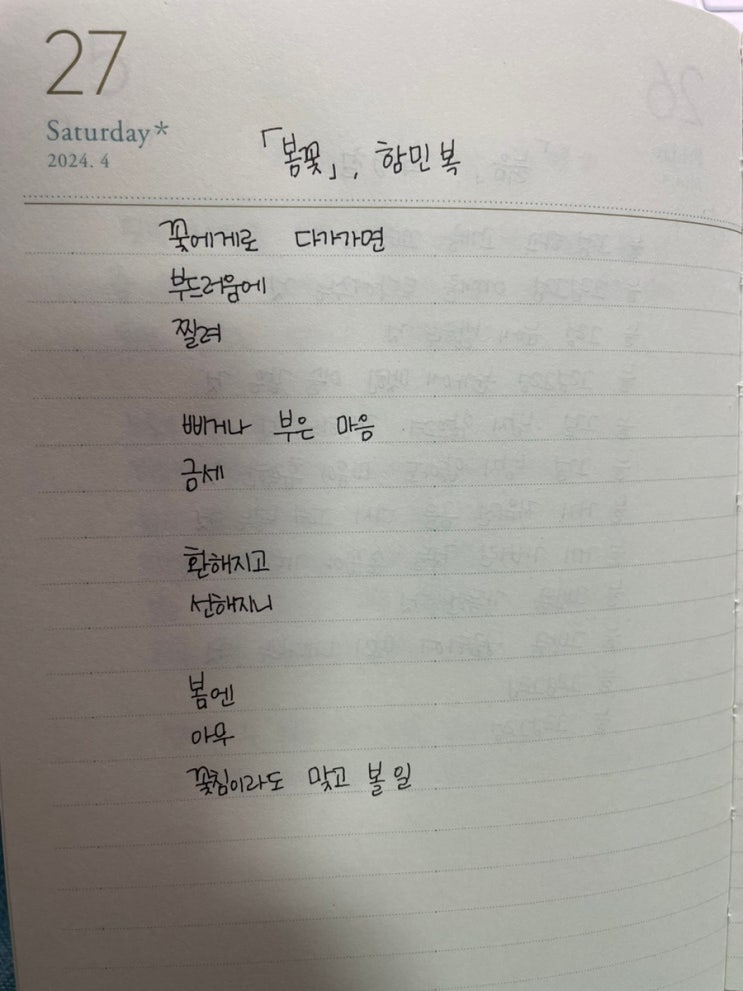 27
Saturday*
2024. 4
「봄꽃」, 함민복
꽃에게로 다가가면
부드러움에
찔려
삐거나 부은 마음
금세
환해지고
선해지니
봄엔
아무
꽃침이라도 맞고 볼 일